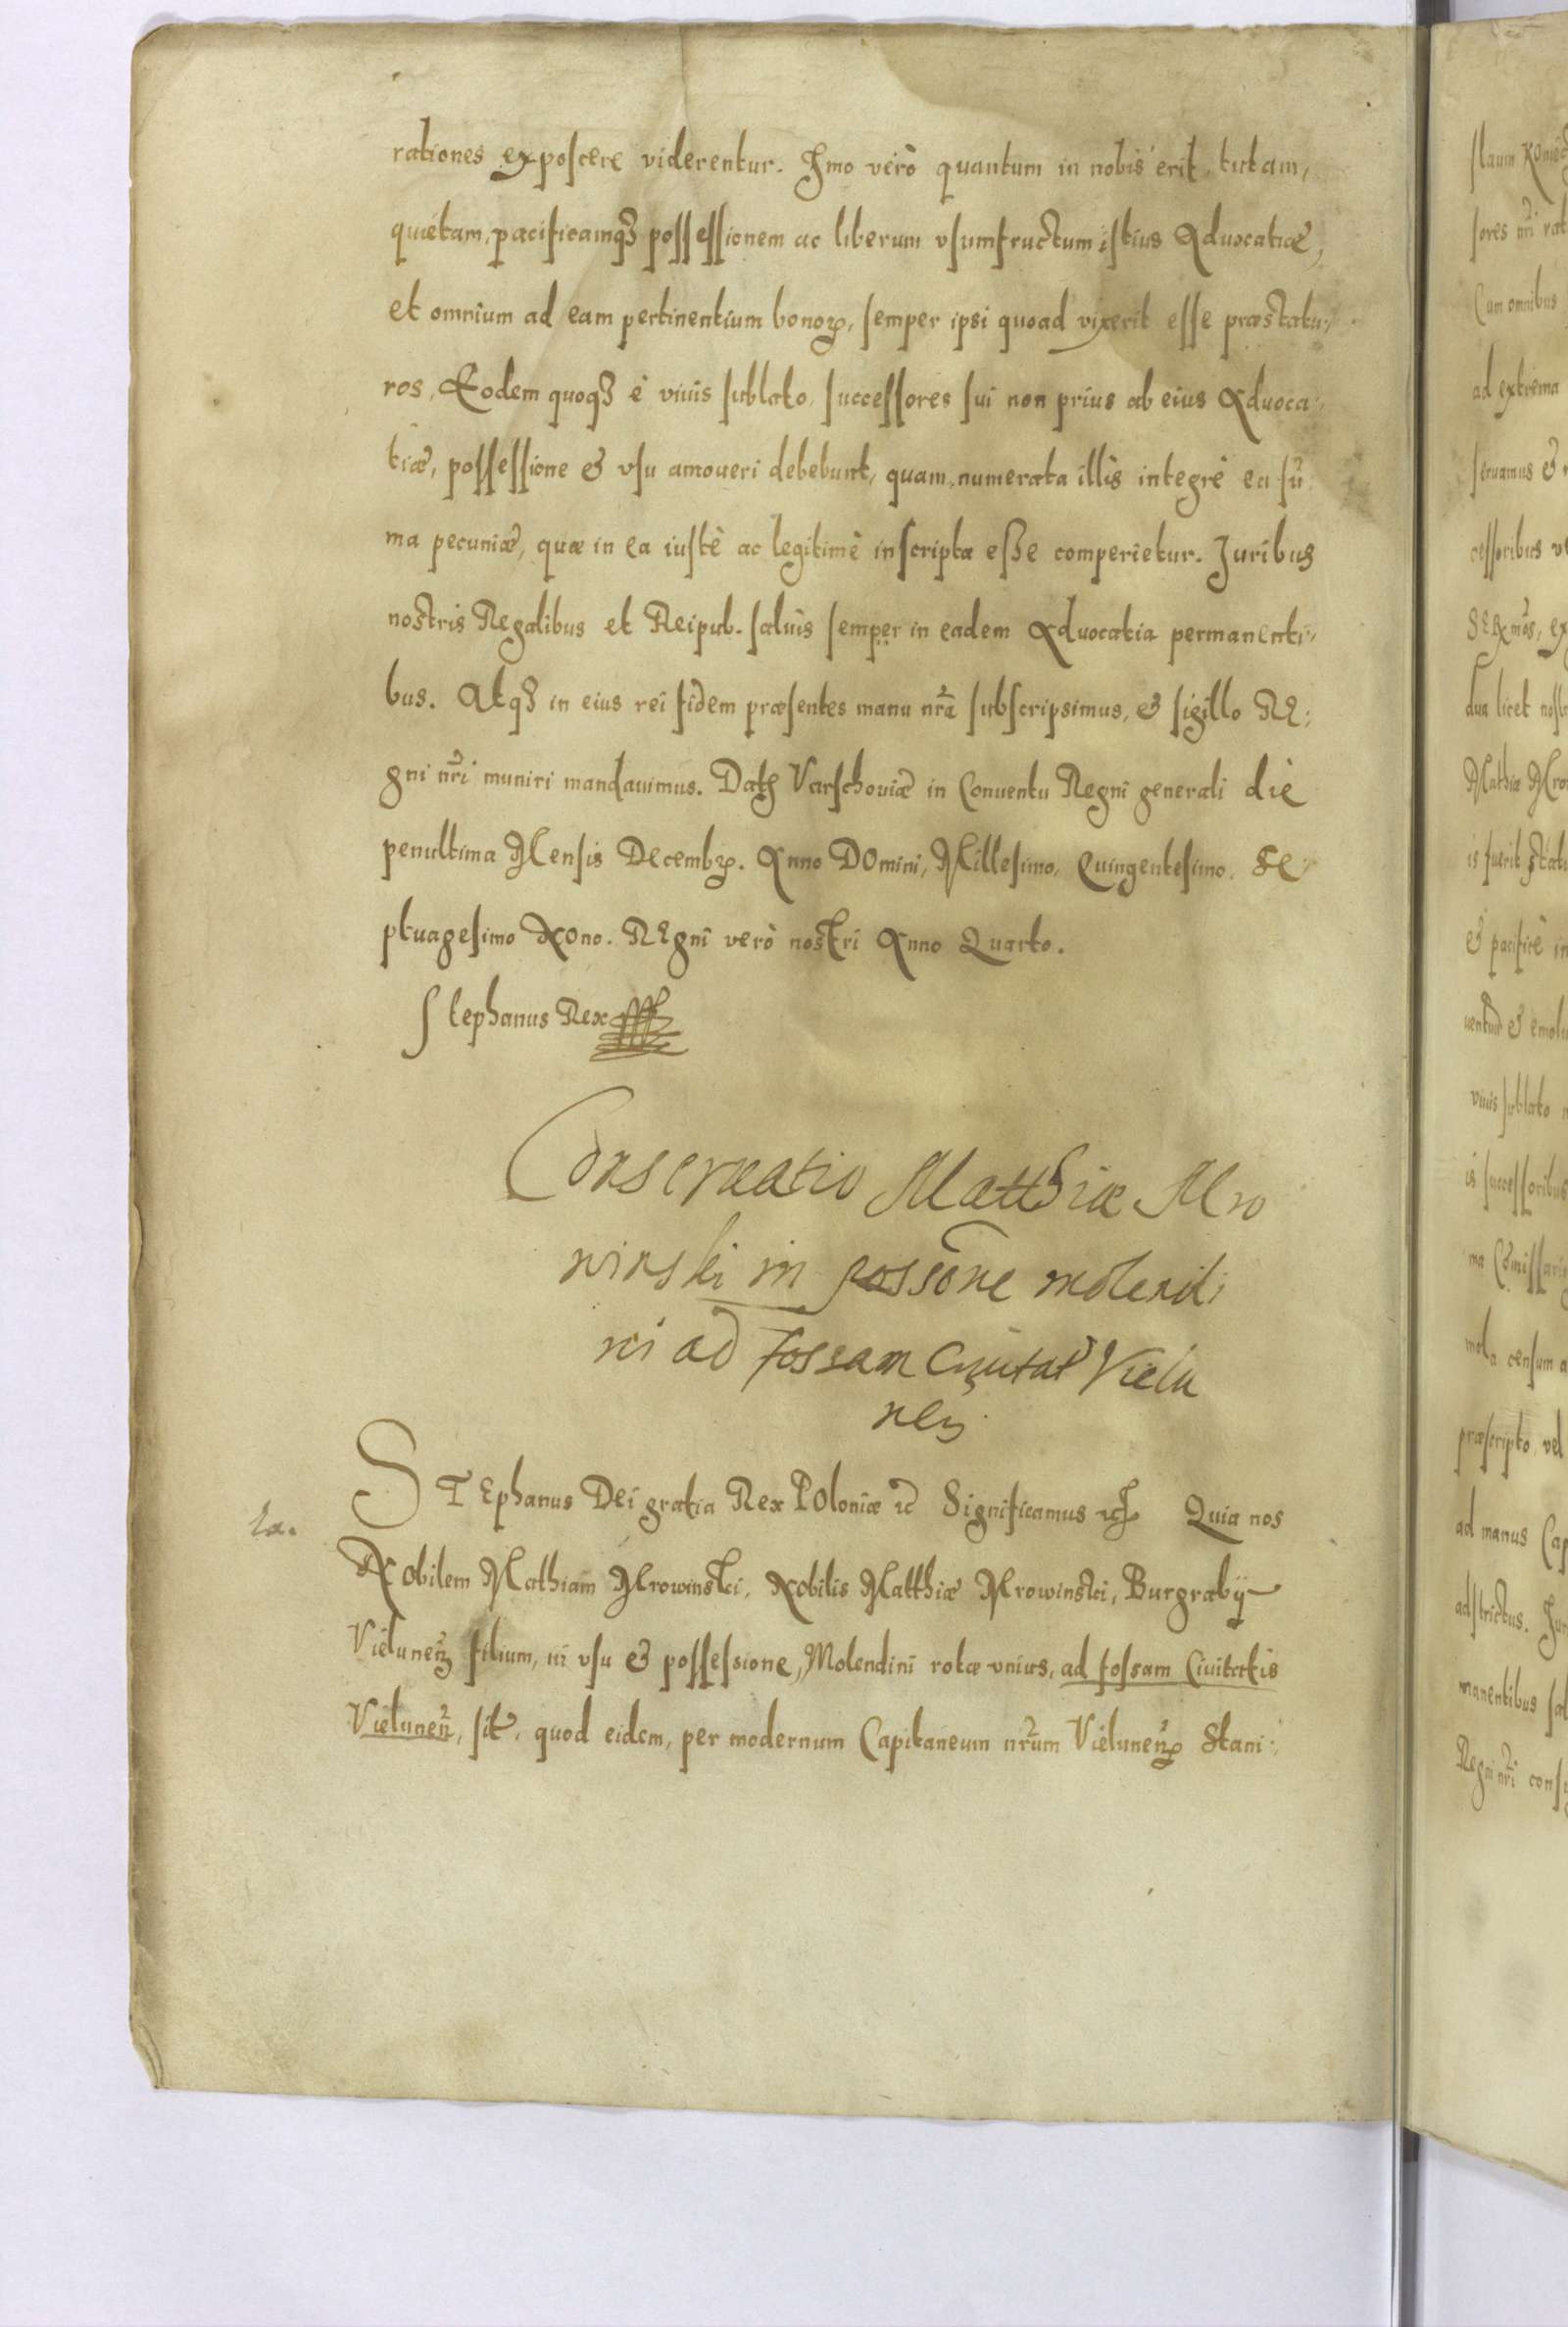 rationes exposcere viderentur. Imo verò quantum in nobis erit, tutam,
quietam, pacificamq3 possessionem ac liberum vsumfructum istius Aduocatiæ,
et omnium ad eam pertinentium bonoꝝ, semper ipsi quoad vixerit esse præstatu-
ros, Eodem quoq3 è viuis sublato, successores sui non prius ab eius Aduoca-
tiæ, possessione & vsu amoueri debebunt, quam, numerata illis integrè ea sū
ma pecuniæ, quæ in ea iustè ac legitimè inscripta eße comperietur. Juribus
nostris Regalibus et Reipub. saluis semper in eadem Aduocatia permanenti-
bus. Atq3 in eius rei fidem præsentes manu nr̃a subscripsimus, & sigillo RE-
gni nr̃i muniri mandauimus. Datꝭ Varschouiæ in Conuentu Regni generali die
penultima Mensis Decembꝝ. Anno DOmini, Millesimo, Quingentesimo. Se-
ptuagesimo Nono. REgni verò nostri Anno Quarto.
Stephanus Rex
Conseruatio Matthiæ Mro
winski in possōne molendi
ni ad fossam Ciuitat Vielu
nen
STEphanus Dei gratia Rex POloniæ ꝛc Significamus ꝛc Quia nos
Nobilem Mathiam Mrowinski, Nobilis Matthiæ Mrowinski, Burgrabij
Vielunen̄ filium, in vsu & possessione, Molendini rotæ vnius, ad fossam Ciuitatis
Vielunen̄, sit, quod eidem, per modernum Capitaneum nr̃um Vielunen̄ Stani-
slaum Koniec
sores nr̃i
Cum omnibus
ad extrema
seruamus &
cessoribus
SERmos, ex
dua licet
Mathiæ Mro
is fuerit
& pacificè in
& emolu
viuis sublato
is successoribus
ma
mola censum a
præscripto, vel
ad manus Cap
adstrictus. Jur
manentibus sal
Regni nr̃i cons